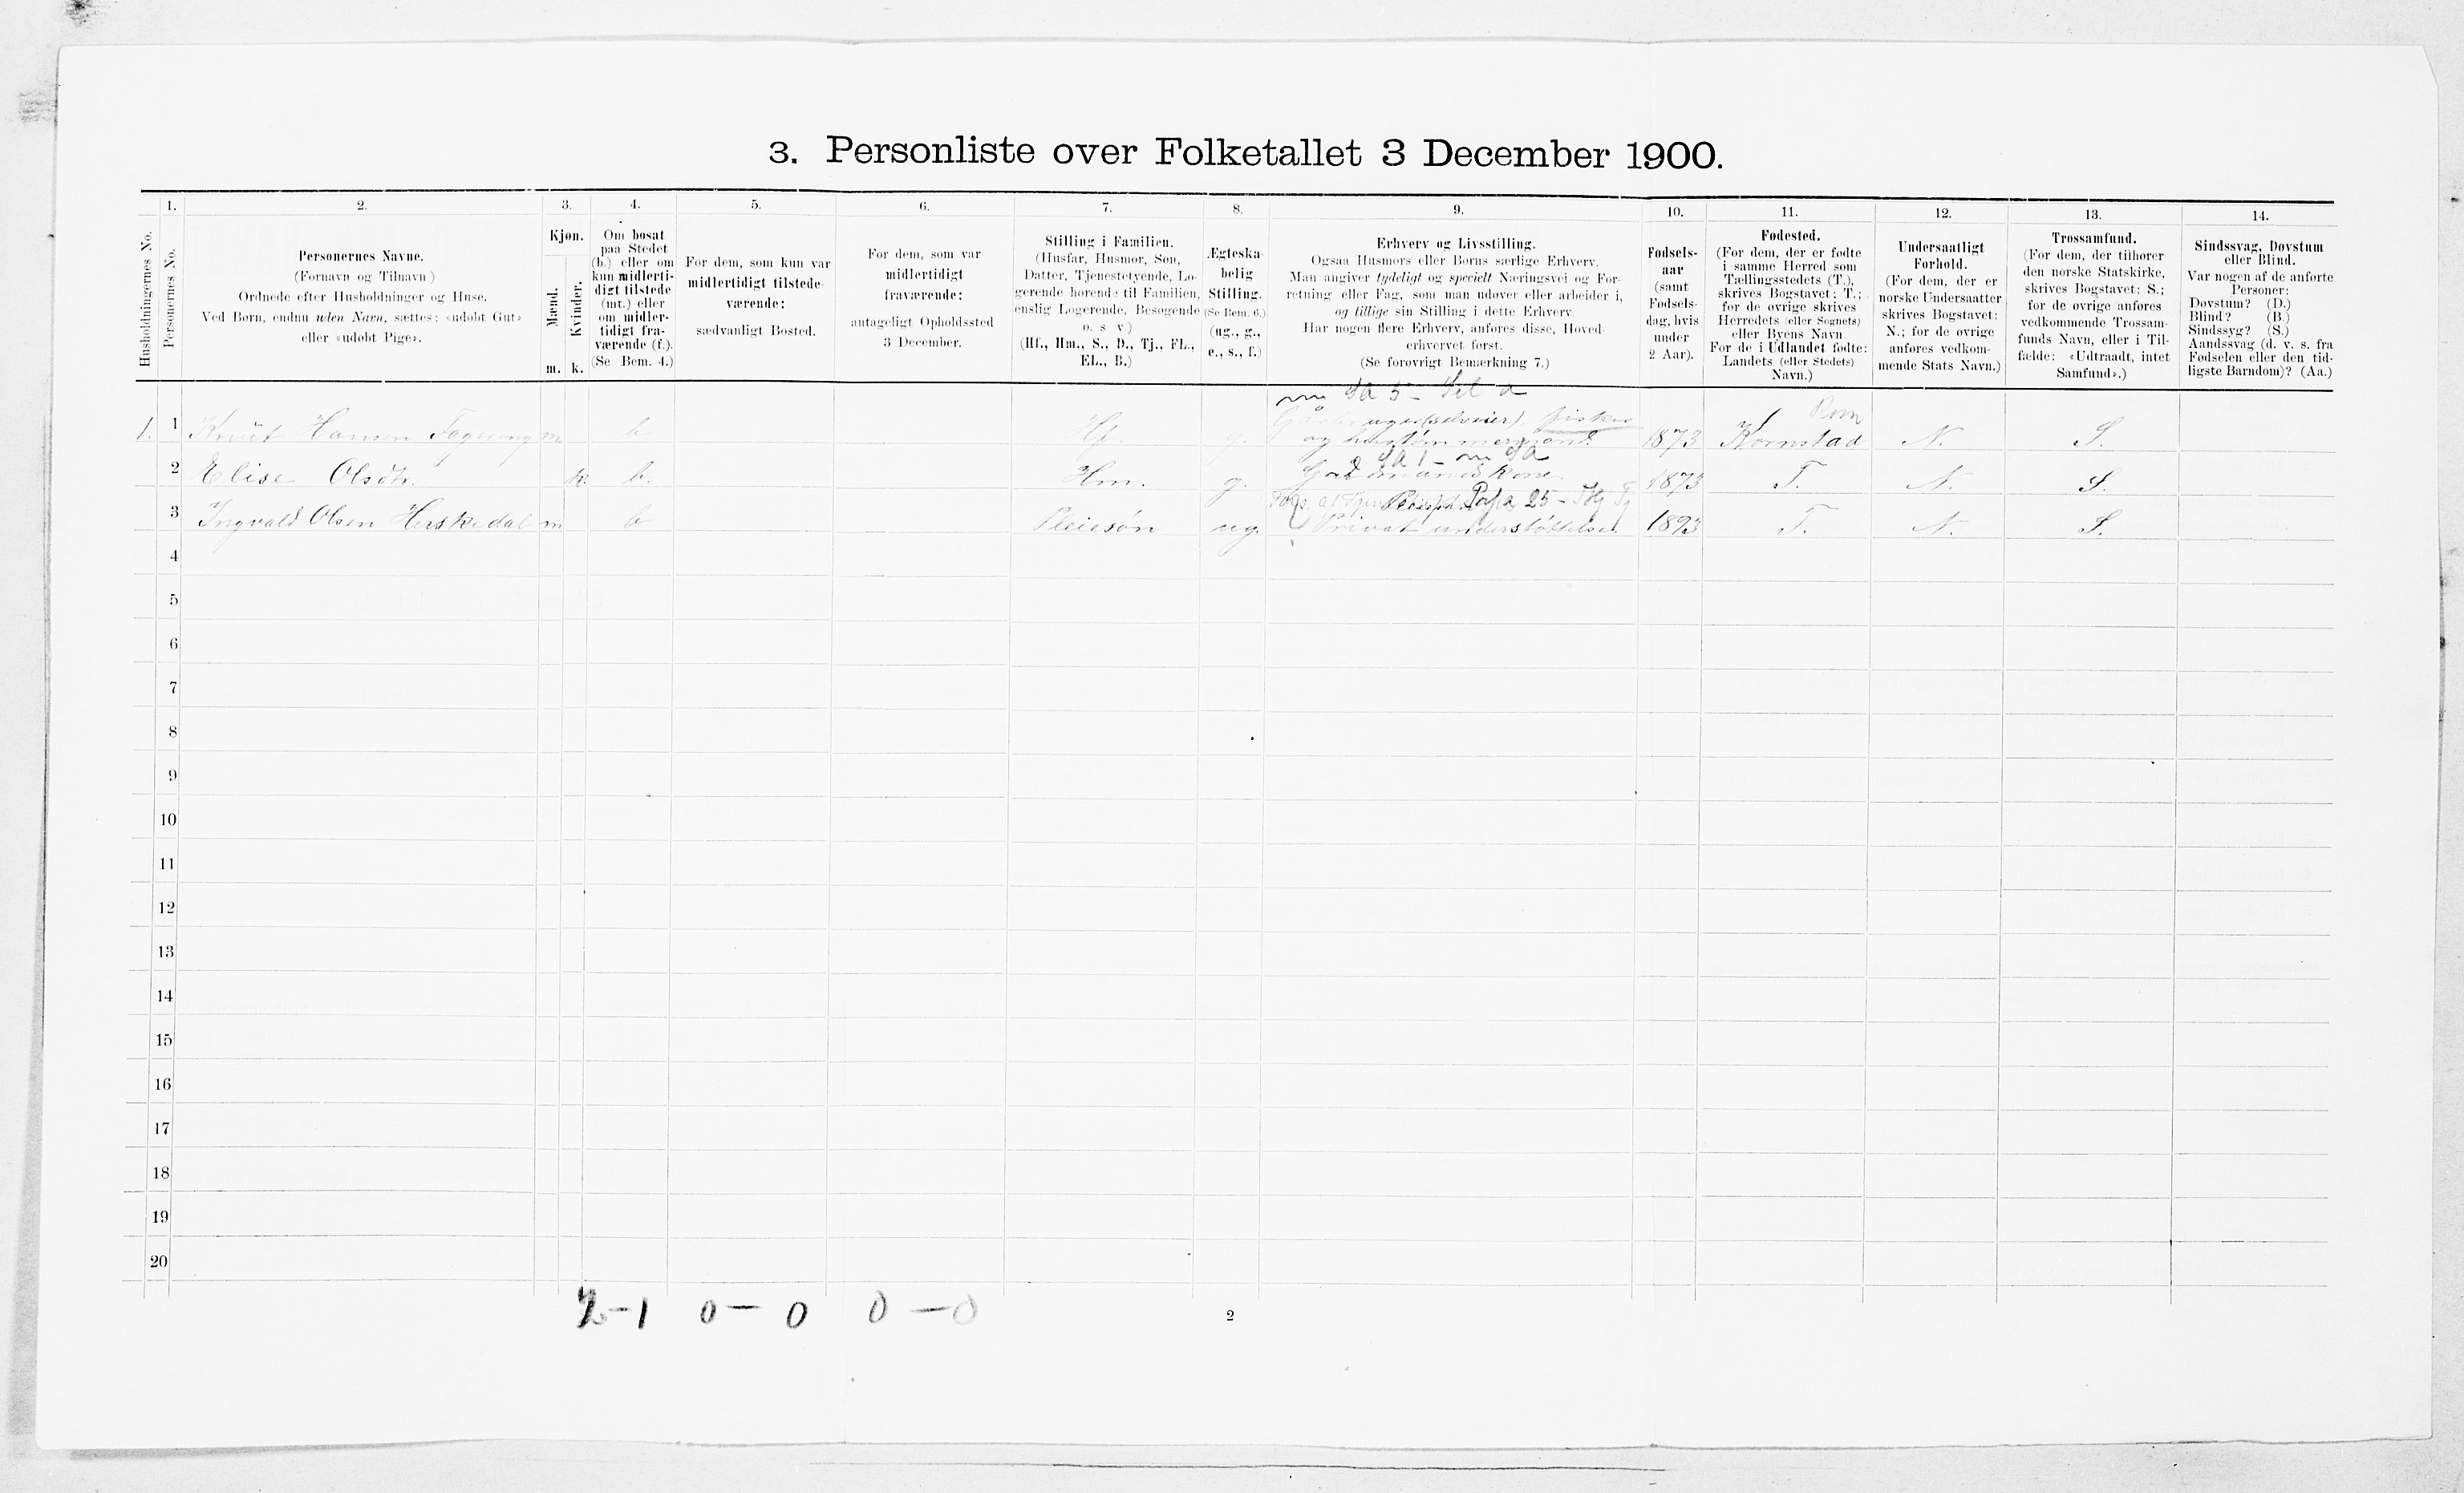 3. Personliste over Folketallet 3 December 1900.
1. 2. 3. 4. 5. 6. 7. 8. 9. 10. 11. 12. 13. 14.
Husholdningernes No.
Personernes No.
Personernes Navne.
(Fornavn og Tilnavn)
Ordnede efter Husholdninger og Huse.
Ved Børn, endnu uden Navn, sættes: «udøbt Gut»
eller «udøbt Pige».
Kjøn.
Mænd.
Kvinder.
m. k.
Om bosat
paa Stedet
(b.) eller om
kun midlerti-
digt tilstede
(mt.) eller
om midler-
tidigt fra-
værende (f.).
(Se Bem. 4.)
For dem, som kun var
midlertidigt tilstede-
værende:
sædvanligt Bosted.
For dem, som var
midlertidigt
fraværende:
antageligt Opholdssted
3 December.
Stilling i Familien.
(Husfar, Husmor, Søn,
Datter, Tjenestetyende, Lo-
gerende hørende til Familien,
enslig Logerende, Besøgende
o. s. v.)
(Hf., Hm., S., D., Tj., FL.,
EL., B.)
Ægteska-
belig
Stilling.
(Se Bem. 6.)
(ug., g.,
e., s., f.)
Erhverv og Livsstilling.
Ogsaa Husmors eller Børns særlige Erhverv.
Man angiver tydeligt og specielt Næringsvei og For-
retning eller Fag, som man udøver eller arbeider i,
og tillige sin Stilling i dette Erhverv.
Har nogen flere Erhverv, anføres disse, Hoved-
erhvervet først.
(Se forøvrigt Bemærkning 7.)
Fødsels-
aar
(samt
Fødsels-
dag, hvis
under
2 Aar).
Fødested.
(For dem, der er fødte
i samme Herred som
Tællingsstedets (T.),
skrives Bogstavet: T.;
for de øvrige skrives
Herredets (eller Sognets)
eller Byens Navn.
For de i Udlandet fødte:
Landets (eller Stedets)
Navn.)
Undersaatligt
Forhold.
(For dem, der er
norske Undersaatter
skrives Bogstavet:
N.; for de øvrige
anføres vedkom-
mende Stats Navn.)
Trossamfund.
(For dem, der tilhører
den norske Statskirke,
skrives Bogstavet: S.;
for de øvrige anføres
vedkommende Trossam-
funds Navn, eller i Til-
fælde: «Udtraadt, intet
Samfund».)
Sindssvag, Døvstum
eller Blind.
Var nogen af de anførte
Personer:
Døvstum? (D.)
Blind? (B.)
Sindssyg? (S.)
Aandssvag (d. v. s. fra
Fødselen eller den tid-
ligste Barndom)? (Aa.)
1. 1 Knüt Hansen m b. Hf. g. Gårdbruger (selveier) fisker 1873 Kornstad N. S.
2 Elise Olsdtr. k. b. Hm. g. Gårdmandskone 1873 T. N. S.
3 Ingvald Olsen Herskedal m b Pleiesön ug. Privat understöttelse 1893 T. N. S.
4
5
6
7
8
9
10
11
12
13
14
15
16
17
18
19
20
2-1 0-0 0-0
2